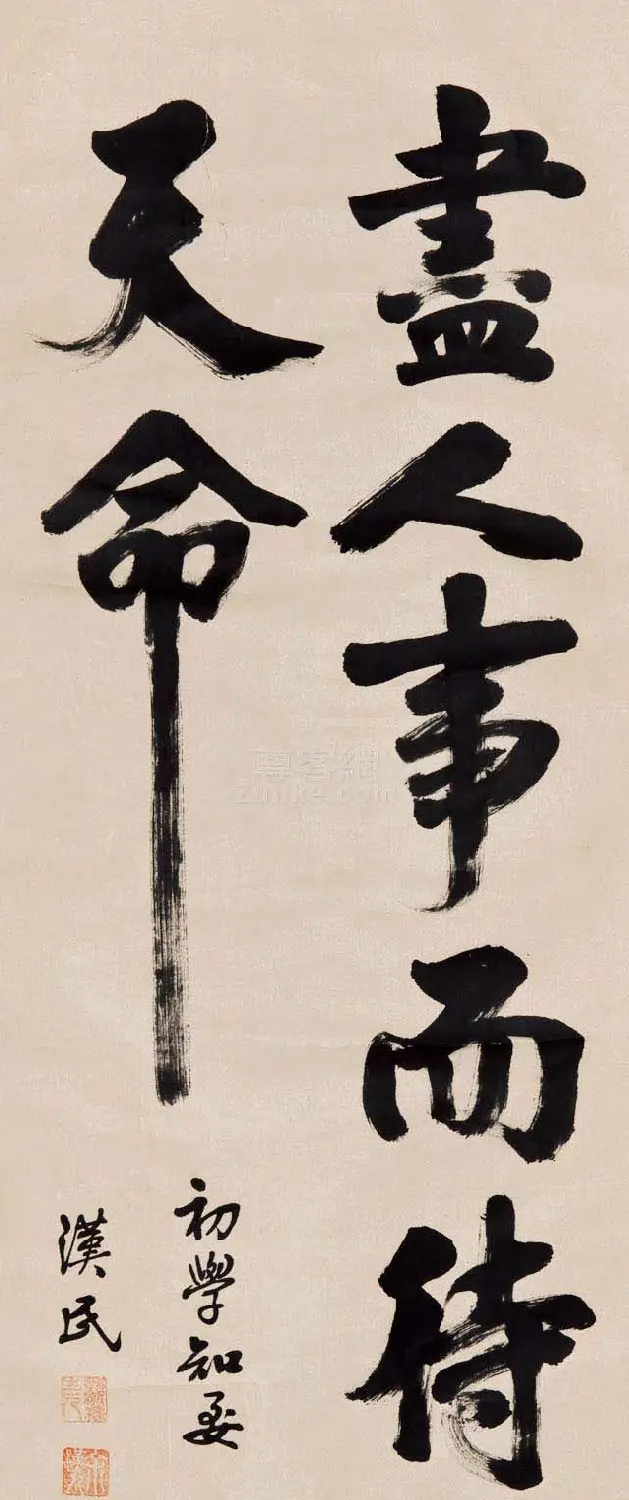 盡人事而待
天命
初學知要
漢民
尊客網
Zunke.com